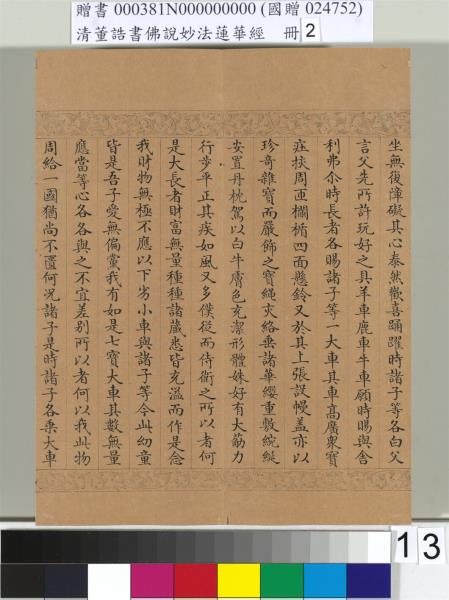 贈書 000381N000000000 (國贈 024752)
清董誥書佛說妙法蓮華經 冊 2
坐無復障礙其心泰然歡喜踊躍時諸子等各白父
言父先所許玩好之具羊車鹿車牛車願時賜與舍
利弗尒時長者各賜諸子等一大車其車高廣衆寶
莊挍周匝欄楯四面懸鈴又於其上張設幰盖亦以
珍奇雜寶而嚴飾之寶繩交絡垂諸華纓重敷綩綖
安置丹枕駕以白牛膚色充潔形體姝好有大筋力
行步平正其疾如風又多僕從而侍衛之所以者何
是大長者財富無量種種諸藏悉皆充溢而作是念
我財物無極不應以下劣小車與諸子等今此幼童
皆是吾子愛無偏黨我有如是七寶大車其數無量
應當等心各各與之不宜差別所以者何以我此物
周給一國猶尚不匱何況諸子是時諸子各乘大車
13